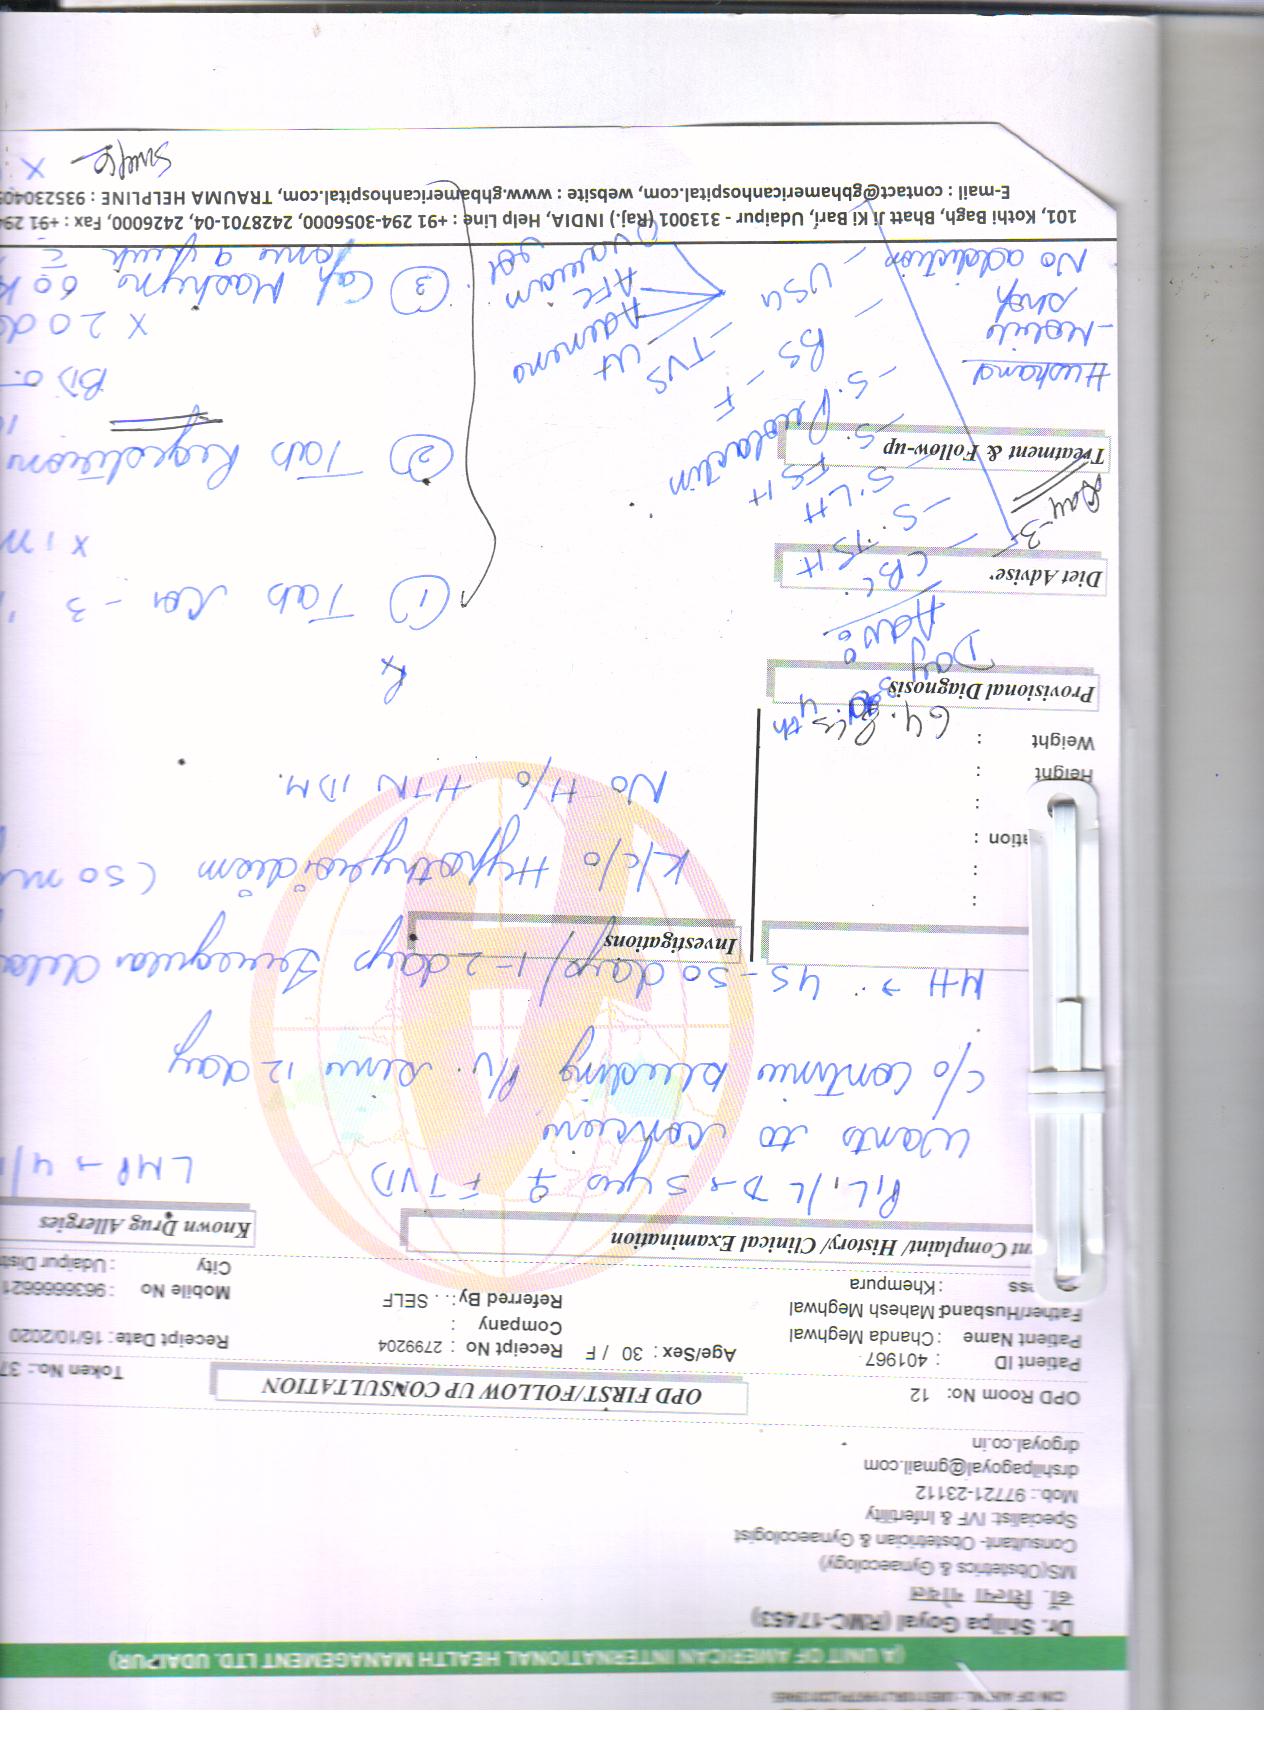 (A UNIT OF AMERICAN INTERNATIONAL HEALTH MANAGEMENT LTD. UDAIPUR)
Dr. Shilpa Goyal (RMC-17453)
डॉ. शिल्पा गोयल
MS(Obstetrics & Gynaecology)
Consultant- Obstetrician & Gynaecologist
Specialist IVF & Infertility
Mob.: 97721-23112
drshilpagoyal@gmail.com
drgoyal.co.in
OPD Room No: 12
OPD FIRST/FOLLOW UP CONSULTATION
Token No.: 37
Patient ID : 401967
Age/Sex : 30 / F
Receipt No : 2799204
Receipt Date: 16/10/2020
Patient Name : Chanda Meghwal
Company :
Father/Husband: Mahesh Meghwal
Referred By: . . SELF
Mobile No : 9636666621
ss : Khempura
City : Udaipur Distr
nt Complaint/ History/ Clinical Examination
Known Drug Allergies
P1L1 / L D → 5 yrs ♀ FTVD
LMP → 4/1
wants to conceive
c/o continue bleeding P/V. since 12 day
MH → 45-50 days/1-2 days Irregular
Investigations
K/c/o Hypothyroidism (50 m
No H/o HTN / DM.
:
:
ation :
:
Height :
Weight : 64.8
Provisional Diagnosis
Rx
Day 3 4th
Adv:
Diet Advise'
CBC
- S. TSH
- S. LH
- S. FSH
- S. Prolactin
BS - F
USG - TVS
Ut
AFC
ovarian vol
Day -3
Treatment & Follow-up
Husband
No addiction
① Tab
x 1 m
② Tab Regestrone
BD
x 20 da
③ Cap 60 K
once a week
101, Kothi Bagh, Bhatt Ji Ki Bari, Udaipur - 313001 (Raj.) INDIA, Help Line : +91 294-3056000, 2428701-04, 2426000, Fax : +91 294
E-mail : contact@gbhamericanhospital.com, website : www.gbhamericanhospital.com, TRAUMA HELPLINE : 935230405